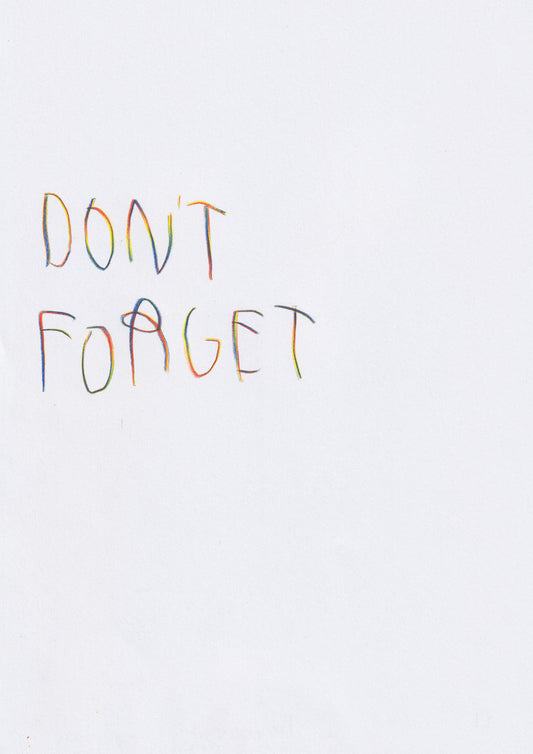 DON'T
FORGET